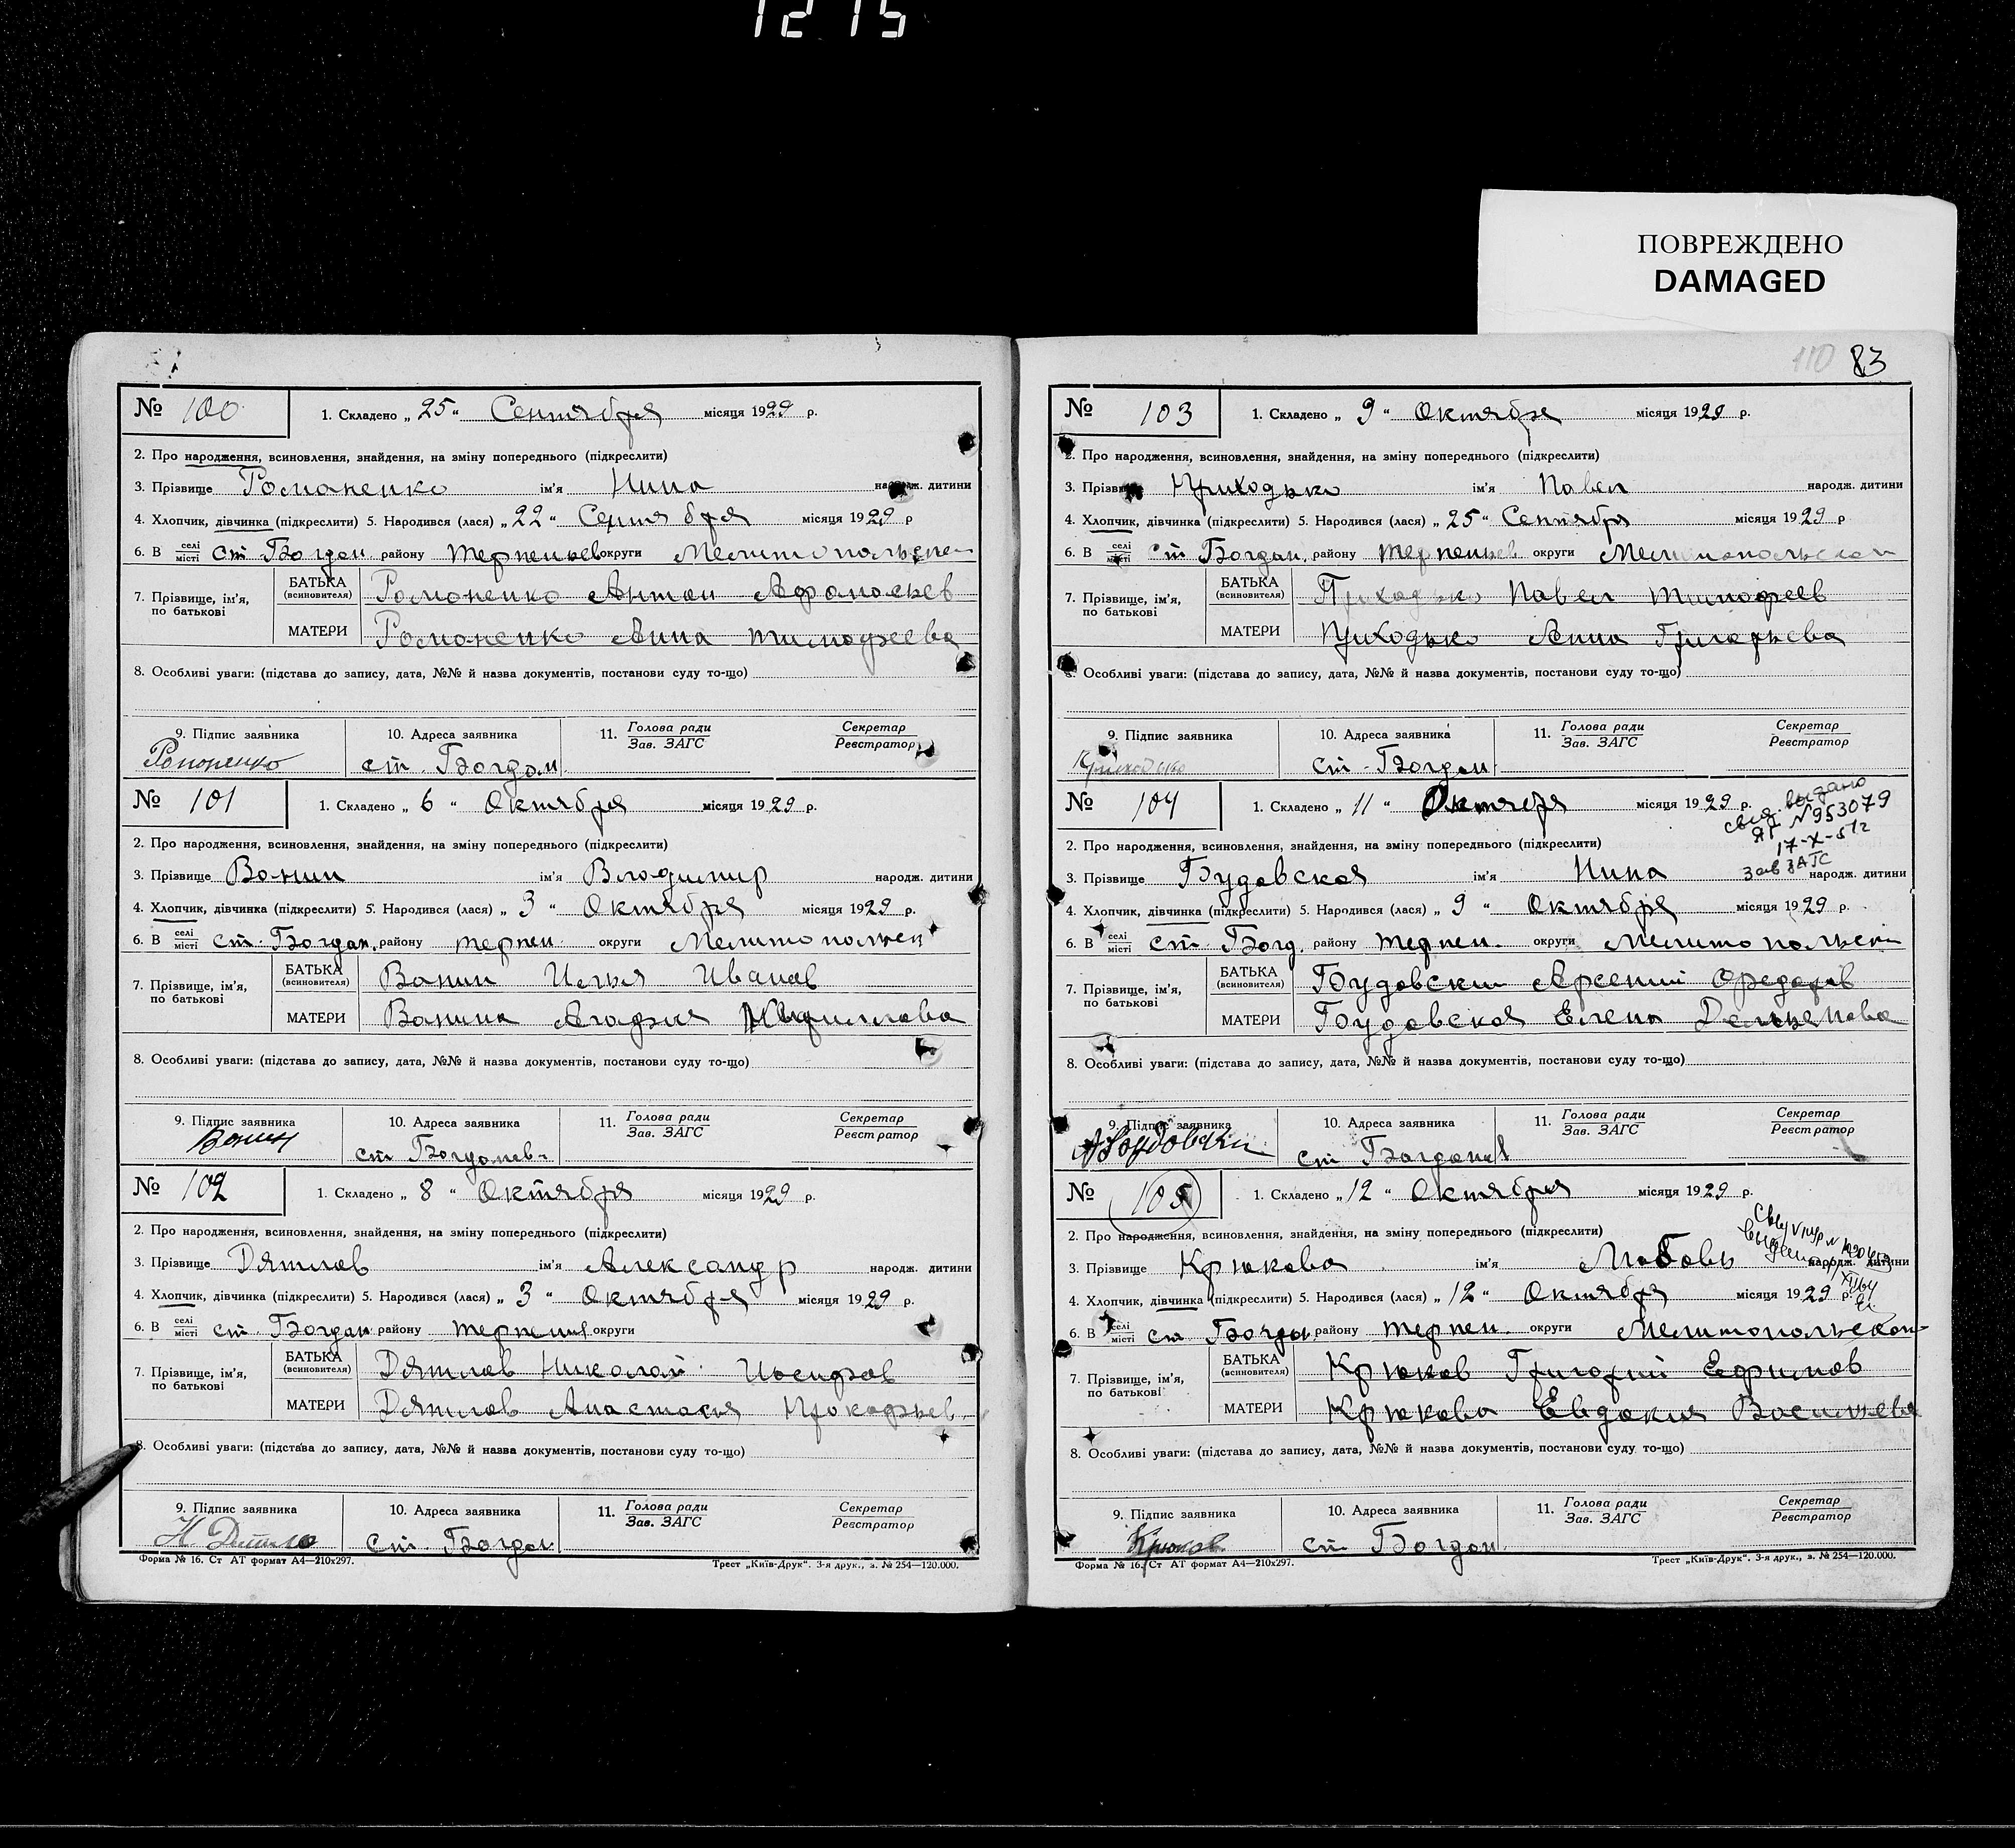 1215
ПОВРЕЖДЕНО
DAMAGED
№ 100 1. Складено „25“ Сентября місяця 1929 р.
2. Про народження, всиновлення, знайдення, на зміну попереднього (підкреслити)
3. Прізвище Романенко ім'я Нина народж. дитини
4. Хлопчик, дівчинка (підкреслити) 5. Народився (лася) „22“ Сентября місяця 1929 р
6. В селі місті ст Богдан району Терпеньев округи Мелитопольской
7. Прізвище, ім'я, по батькові БАТЬКА (всиновителя) Романенко Антон Афонасьев
МАТЕРИ Романенко Анна Тимофеева
8. Особливі уваги: (підстава до запису, дата, №№ й назва документів, постанови суду то-що)
9. Підпис заявника 10. Адреса заявника 11. Голова ради Зав. ЗАГС Секретар Реєстратор
Романенко ст. Богдан
№ 101 1. Складено „6“ Октября місяця 1929 р.
2. Про народження, всиновлення, знайдення, на зміну попереднього (підкреслити)
3. Прізвище Ванин ім'я Владимир народж. дитини
4. Хлопчик, дівчинка (підкреслити) 5. Народився (лася) „3“ Октября місяця 1929 р.
6. В селі місті ст. Богдан. району Терпен. округи Мелитопольск
7. Прізвище, ім'я, по батькові БАТЬКА (всиновителя) Ванин Илья Иванов
МАТЕРИ Ванина Агафия
8. Особливі уваги: (підстава до запису, дата, №№ й назва документів, постанови суду то-що)
9. Підпис заявника 10. Адреса заявника 11. Голова ради Зав. ЗАГС Секретар Реєстратор
Ванин ст Богданов
№ 102 1. Складено „8“ Октября місяця 1929 р.
2. Про народження, всиновлення, знайдення, на зміну попереднього (підкреслити)
3. Прізвище Дятлов ім'я Александр народж. дитини
4. Хлопчик, дівчинка (підкреслити) 5. Народився (лася) „3“ Октября місяця 1929 р.
6. В селі місті ст. Богдан району округи
7. Прізвище, ім'я, по батькові БАТЬКА (всиновителя) Дятлов Николай Иосифов
МАТЕРИ Дятлов Анастасия Прокофьев.
8. Особливі уваги: (підстава до запису, дата, №№ й назва документів, постанови суду то-що)
9. Підпис заявника 10. Адреса заявника 11. Голова ради Зав. ЗАГС Секретар Реєстратор
ст. Богдан
Форма № 16. Ст АТ формат А4—210х297. Трест „Київ-Друк“. 3-я друк., з. № 254—120.000.
110 83
№ 103 1. Складено „9“ Октября місяця 1929 р.
2. Про народження, всиновлення, знайдення, на зміну попереднього (підкреслити)
3. Прізвище Приходько ім'я Павел народж. дитини
4. Хлопчик, дівчинка (підкреслити) 5. Народився (лася) „25“ Сентября місяця 1929 р
6. В селі місті ст Богдан. району Терпеньев округи Мелитопольской
7. Прізвище, ім'я, по батькові БАТЬКА (всиновителя) Приходько Павел Тимофеев
МАТЕРИ Приходько Анна Григорьева
8. Особливі уваги: (підстава до запису, дата, №№ й назва документів, постанови суду то-що)
9. Підпис заявника 10. Адреса заявника 11. Голова ради Зав. ЗАГС Секретар Реєстратор
Приходько ст. Богдан
№ 104 1. Складено „11“ Октября місяця 1929 р.
выдано
свид. ЯГ № 953079
17-X-51г
Зав ЗАГС
2. Про народження, всиновлення, знайдення, на зміну попереднього (підкреслити)
3. Прізвище Будовская ім'я Нина народж. дитини
4. Хлопчик, дівчинка (підкреслити) 5. Народився (лася) „9“ Октября місяця 1929 р.
6. В селі місті ст. Богд. району Терпен. округи Мелитопольск
7. Прізвище, ім'я, по батькові БАТЬКА (всиновителя) Будовски Арсений
МАТЕРИ Будовская Елена
8. Особливі уваги: (підстава до запису, дата, №№ й назва документів, постанови суду то-що)
9. Підпис заявника 10. Адреса заявника 11. Голова ради Зав. ЗАГС Секретар Реєстратор
ст Богданов
№ 105 1. Складено „12“ Октября місяця 1929 р.
2. Про народження, всиновлення, знайдення, на зміну попереднього (підкреслити)
3. Прізвище Крюкова ім'я Любовь народж. дитини
4. Хлопчик, дівчинка (підкреслити) 5. Народився (лася) „12“ Октября місяця 1929 р.
6. В селі місті ст Богдан. району Терпен. округи Мелитопольской
7. Прізвище, ім'я, по батькові БАТЬКА (всиновителя) Крюков Григорий Ефимов
МАТЕРИ Крюкова Евдокия Васильева
8. Особливі уваги: (підстава до запису, дата, №№ й назва документів, постанови суду то-що)
9. Підпис заявника 10. Адреса заявника 11. Голова ради Зав. ЗАГС Секретар Реєстратор
Крюков ст Богдан
Форма № 16. Ст АТ формат А4—210х297. Трест „Київ-Друк“. 3-я друк., з. № 254—120.000.